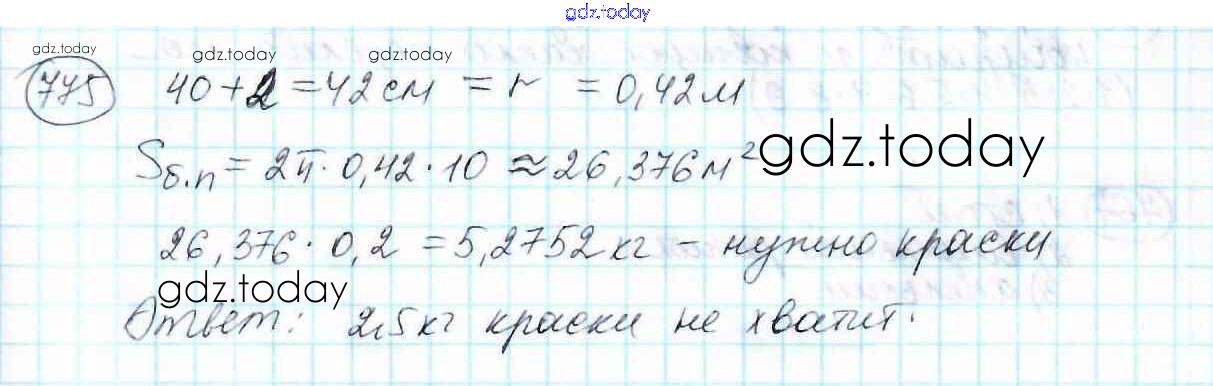 gdz.today
gdz.today gdz.today gdz.today
775 40+2=42см = r = 0,42м
Sб.п = 2π·0,42·10 ≈ 26,376м² gdz.today
26,376·0,2 = 5,2752кг – нужно краски
gdz.today
Ответ: 2,5кг краски не хватит.